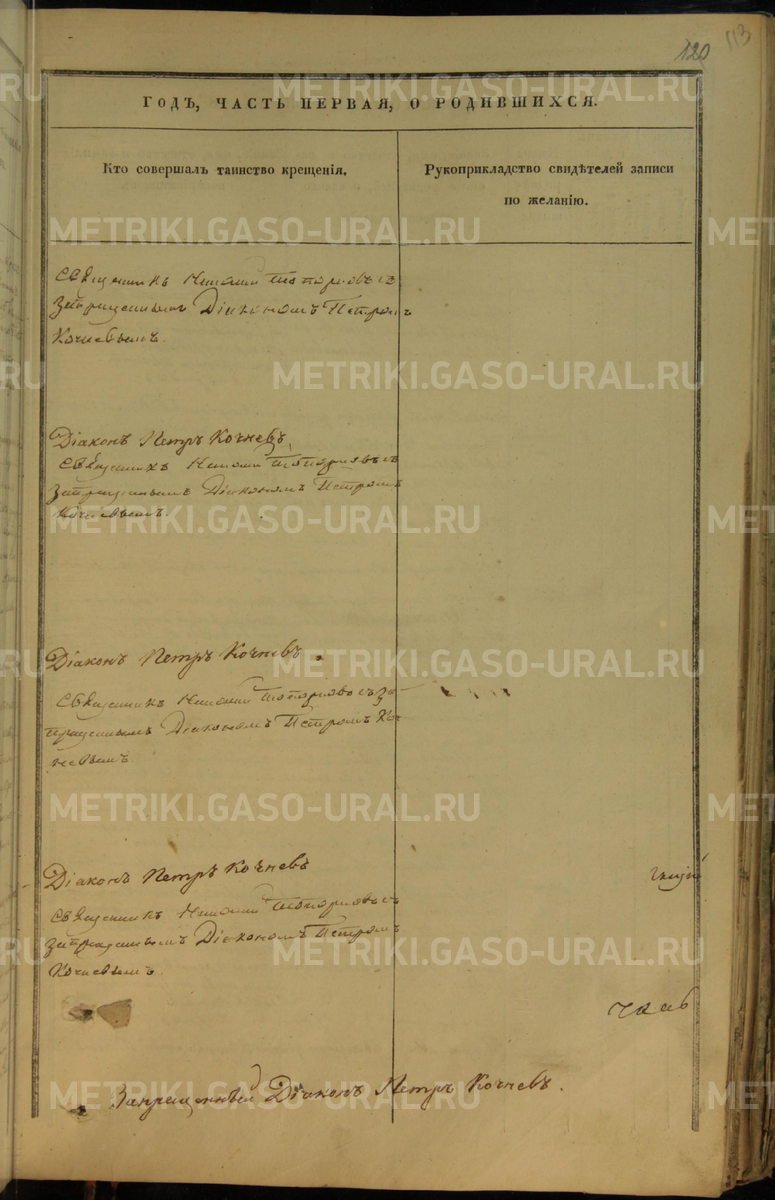 120
113
ГОДЪ, ЧАСТЬ ПЕРВАЯ, О РОДИВШИХСЯ.
Кто совершалъ таинство крещенія.
Рукоприкладство свидѣтелей записи
по желанію.
Священникъ Топорковъ съ
Запрещеннымъ Діакономъ Петромъ
Кочневымъ.
Діаконъ Петръ Кочневъ
Священникъ Топорковъ съ
Запрещеннымъ Діакономъ Петромъ
Кочневымъ.
Діаконъ Петръ Кочневъ.
Священникъ Топорковъ съ За-
прещеннымъ Діакономъ Петромъ Коч-
невымъ.
Діаконъ Петръ Кочневъ
Священникъ Топорковъ съ
Запрещеннымъ Діакономъ Петромъ
Кочневымъ.
Запрещенный Діаконъ Петръ Кочневъ.
METRIKI.GASO-URAL.RU